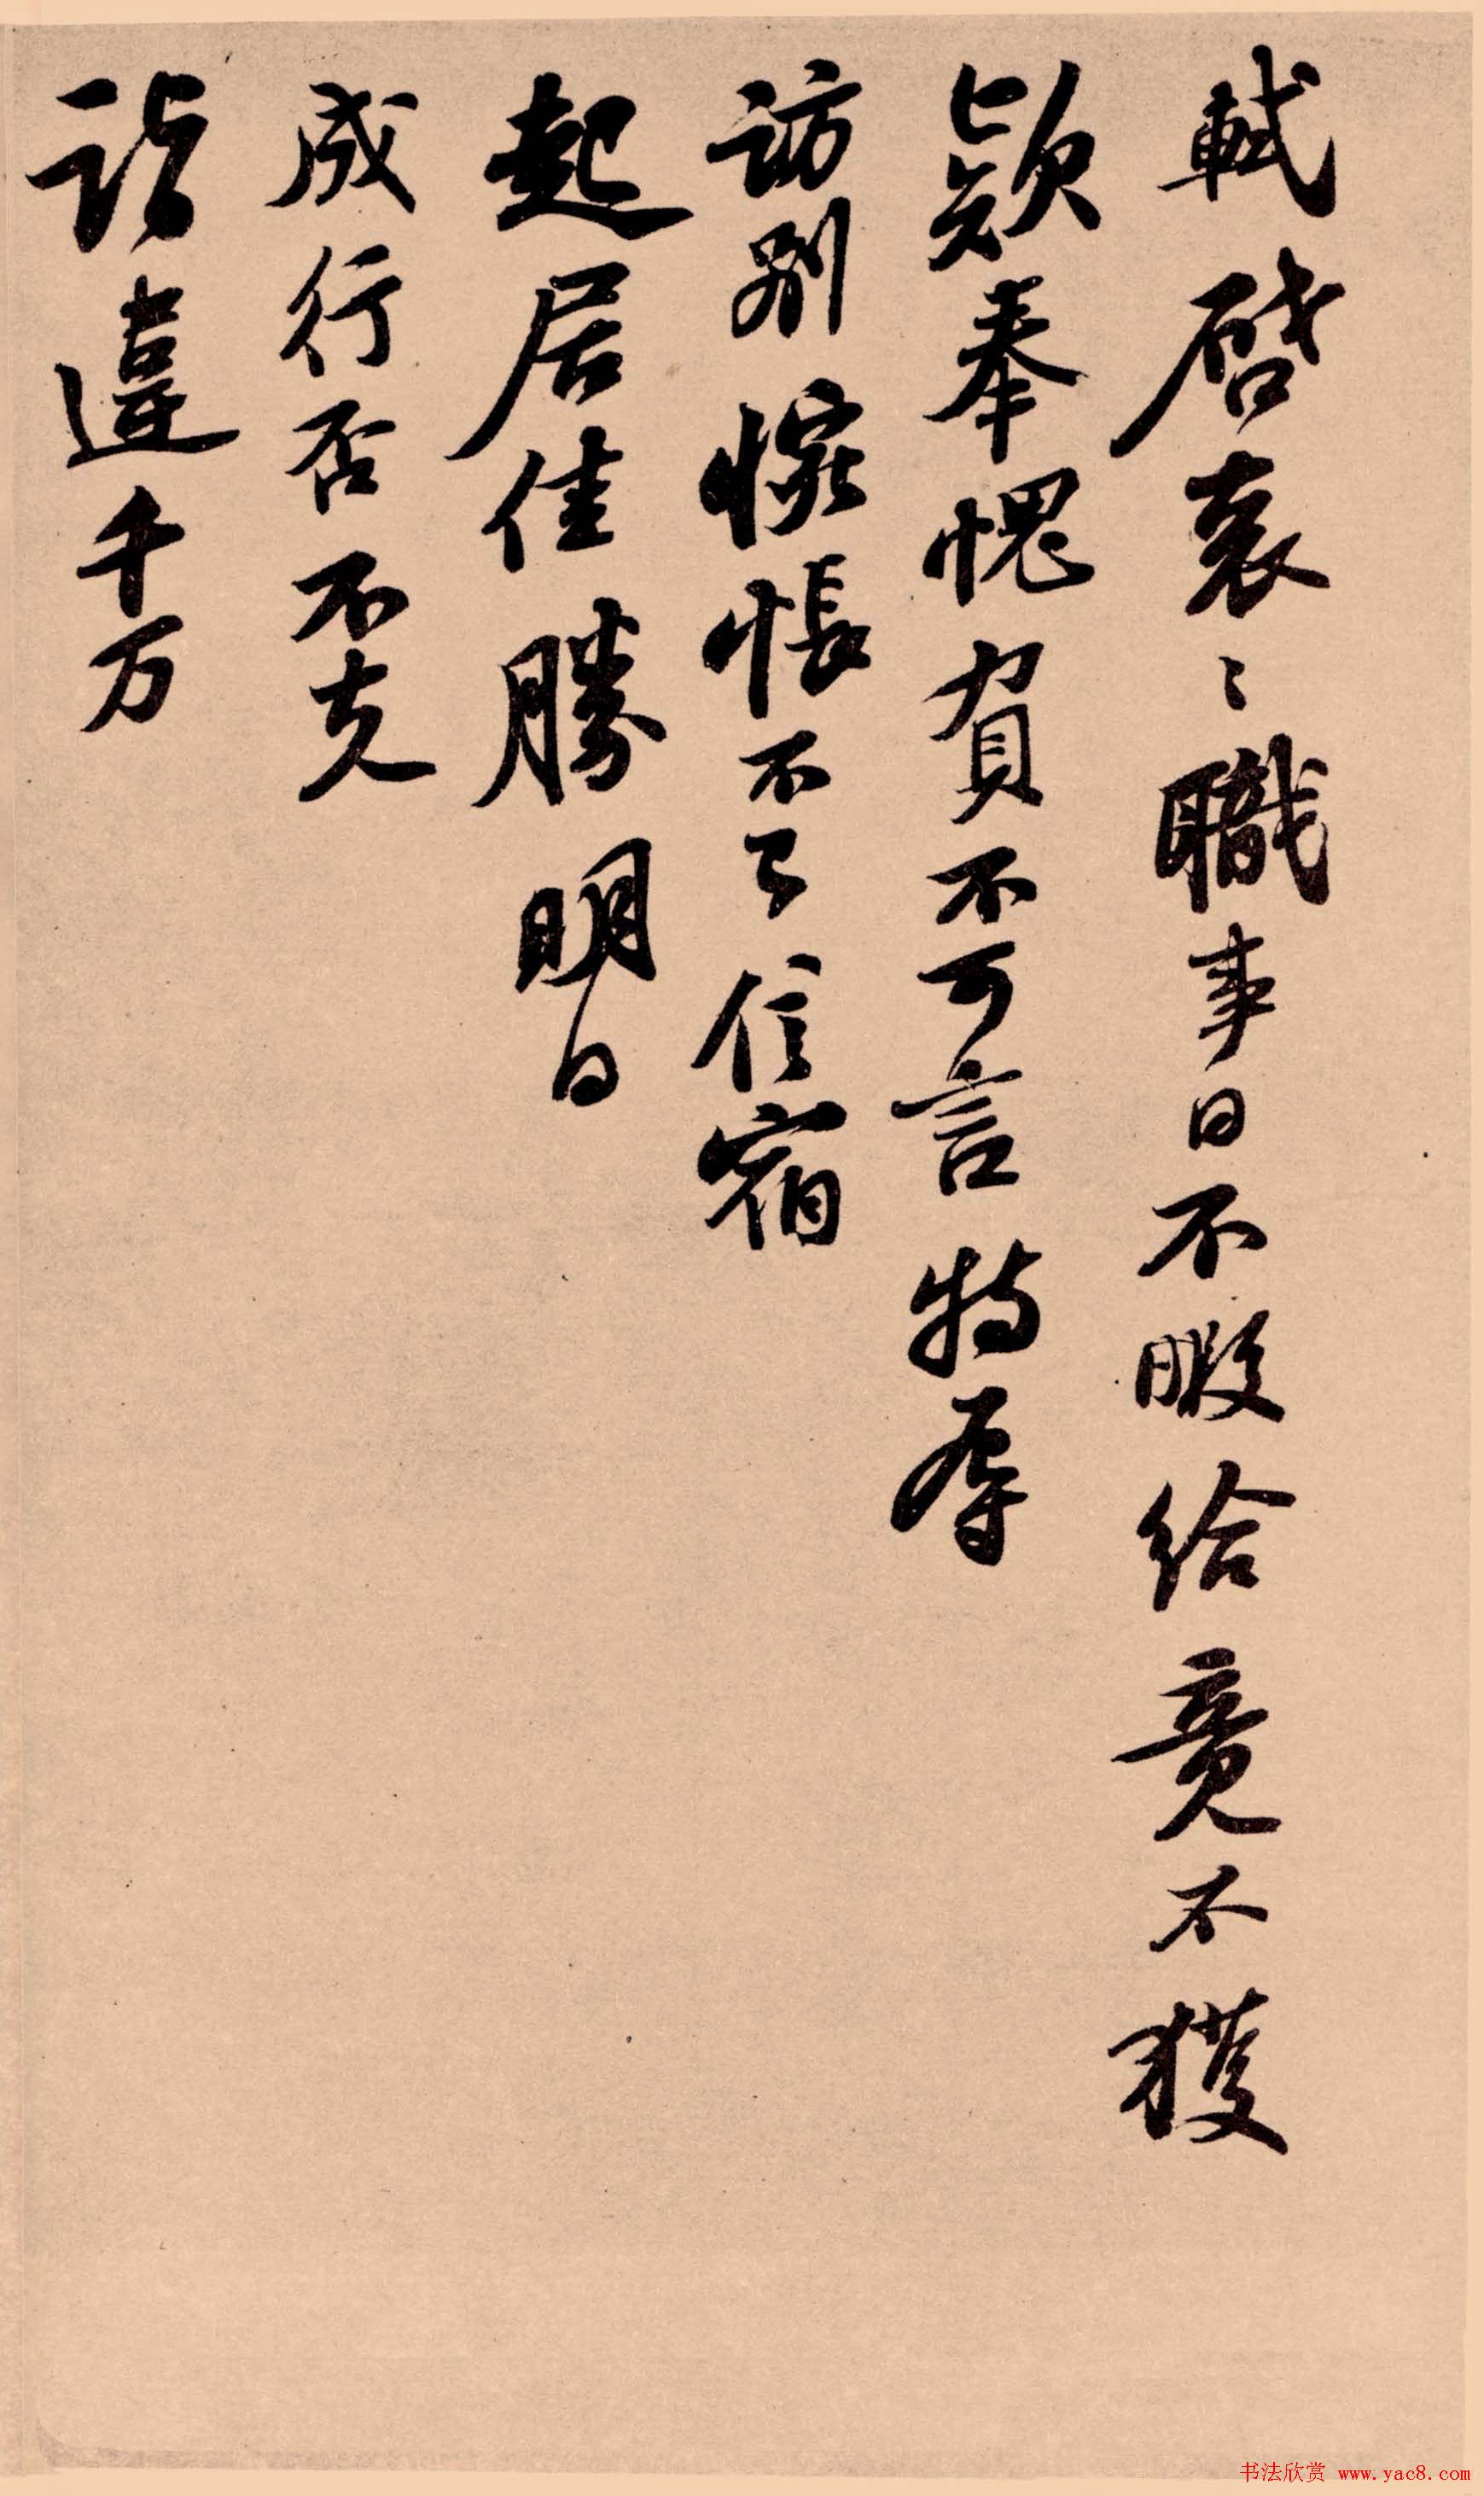 軾啓衰〻職事日不暇給竟不獲
款奉愧負不可言特辱
訪別惋悵不已信宿
起居佳勝明日
成行否不克
詣違千万
书法欣赏 www.yac8.com